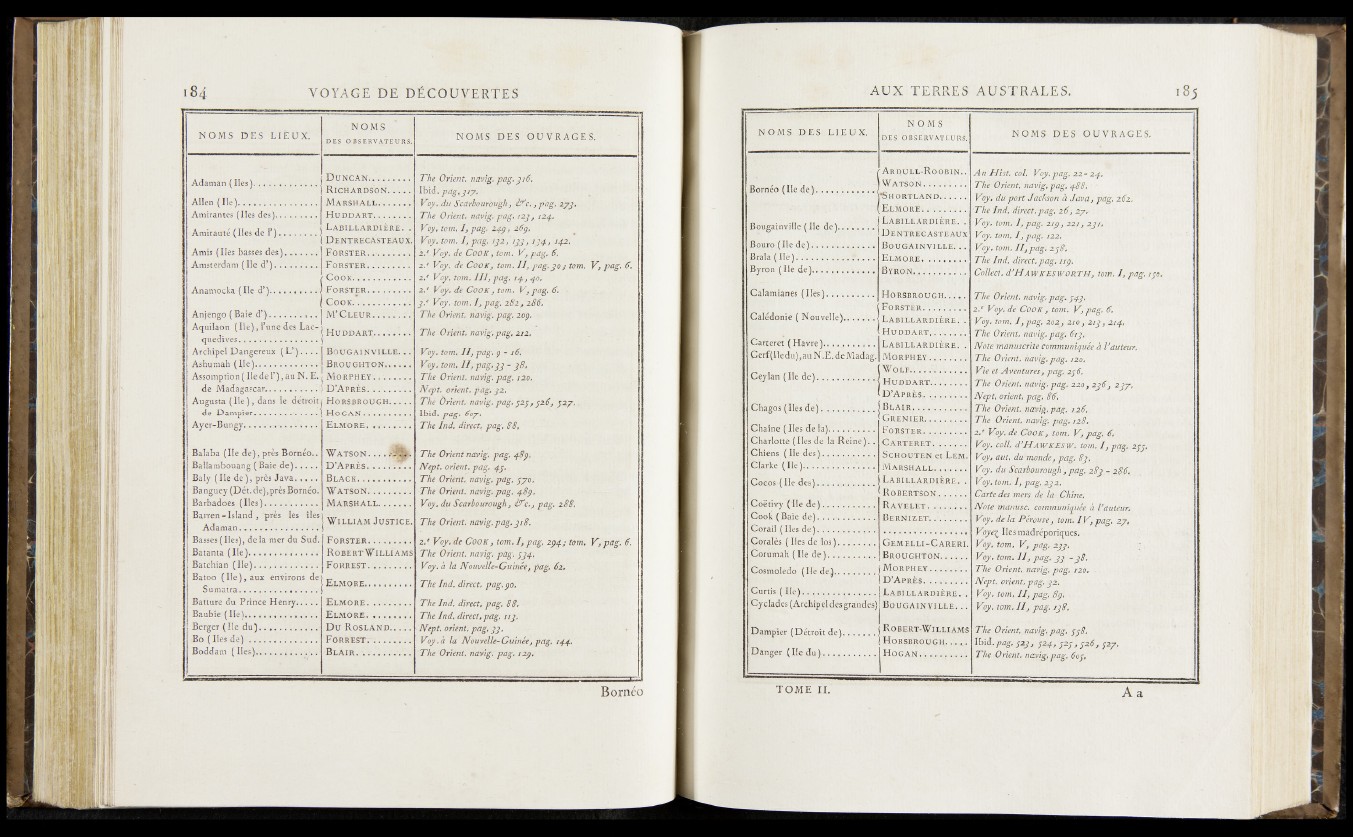 184 VOYAGE DE DÉCOUVERTES
NOMS DES LIEUX. NOMS DES OBSERVATEURS. NOMS DES OUVRAGES.
Adaman (Iles)............. DUNCAN......... The Orient. navig. pag. 316.
RICHARDSON..... Ibid. pag. 317.
Allen (Ile)................ MARSHALL....... Voy. du Scarbourough, &c., pag. 273.
Amirantes (Iles des)......... HUDDART........ The Orient. navig. pag. 123, 124.
Amirauté (Iles de l')........ LABILLARDIÈRE.. Voy. tom. I, pag. 249, 269.
DENTRECASTEAUX. Voy. tom. I, pag. 132, 133, 134, 142.
Amis (Iles basses des)....... FORSTER......... 2.e Voy. de COOK, tom. V, pag. 6.
Amsterdam (Ile d')......... FORSTER......... 2.e Voy. de COOK, tom. II, pag. 30; tom. V, pag. 6.
COOK........... 2.e Voy. tom. III, pag. 14, 40.
Anamocka (Ile d').......... FORSTER......... 2.e Voy. de COOK, tom. V, pag. 6.
COOK........... 3.e Voy. tom. I, pag. 282, 286.
Anjengo (Baie d').......... M'CLEUR........ The Orient. navig. pag. 209.
Aquilaon (Ile), l'une des Lac-
quedives................ HUDDART........ The Orient. navig. pag. 212.
Archipel Dangereux (L').... BOUGAINVILLE... Voy. tom. II, pag. 9 - 16.
Ashumah (Ile)............. BROUGHTON...... Voy. tom. II, pag. 33 - 38.
Assomption (Ile de l'), au N. E. MORPHEY........ The Orient. navig. pag. 120.
de Madagascar............ D'APRÈS......... Nept. orient. pag. 32.
Augusta (Ile), dans le détroit HORSBROUGH..... The Orient. navig. pag. 525, 526, 527.
de Dampier.............. HOGAN.......... Ibid. pag. 607.
Ayer-Bungy............... ELMORE......... The Ind. direct. pag. 88.
Balaba (Ile de), près Bornéo.. WATSON......... The Orient navig. pag. 489.
Ballambouang (Baie de)..... D'APRÈS......... Nept. orient. pag. 45.
Baly (Ile de), près Java..... BLACK........... The Orient. navig. pag. 570.
Banguey (Dét. de), près Bornéo. WATSON......... The Orient. navig. pag. 489.
Barbadoes (Iles)........... MARSHALL....... Voy. du Scarbourough, &c., pag. 288.
Barren-Island, près les îles
Adaman................ WILLIAM JUSTICE. The Orient. navig. pag. 318.
Basses (Iles), de la mer du Sud. FORSTER......... 2.e Voy. de COOK, tom. I, pag. 294; tom. V, pag. 6.
Batanta (Ile).............. ROBERT WILLIAMS The Orient. navig. pag. 534.
Batchian (Ile)............. FORREST......... Voy. à la Nouvelle-Guinée, pag. 62.
Batoo (Ile), aux environs de
Sumatra................ ELMORE......... The Ind. direct. pag. 90.
Batture du Prince Henry..... ELMORE......... The Ind. direct. pag. 88.
Baubie (Ile)............... ELMORE......... The Ind. direct. pag. 113.
Berger (Ile du)............. DU ROSLAND..... Nept. orient. pag. 33.
Bo (Iles de)............... FORREST......... Voy. à la Nouvelle-Guinée, pag. 144.
Boddam (Iles)............. BLAIR........... The Orient. navig. pag. 129.
Bornéo
AUX TERRES AUSTRALES. 185
NOMS DES LIEUX. NOMS DES OBSERVATEURS. NOMS DES OUVRAGES.
Bornéo (Ile de)............ ABDULL-ROOBIN.. An Hist. col. Voy. pag. 22 - 24.
WATSON......... The Orient. navig. pag. 488.
SHORTLAND...... Voy. du port Jackson à Java, pag. 262.
ELMORE......... The Ind. direct. pag. 26, 27.
Bougainville (Ile de)........ LABILLARDIÈRE.. Voy. tom. I, pag. 219, 221, 231.
DENTRECASTEAUX Voy. tom. I, pag. 122.
Bouro (Ile de)............. BOUGAINVILLE... Voy. tom. II, pag. 238.
Brala (Ile)................ ELMORE......... The Ind. direct. pag. 119.
Byron (Ile de)............. BYRON.......... Collect. d'HAWKESWORTH, tom. I, pag. 130.
Calamianes (Iles).......... HORSBROUGH..... The Orient. navig. pag. 543.
Calédonie (Nouvelle)....... FORSTER......... 2.e Voy. de COOK, tom. V, pag. 6.
LABILLARDIÈRE.. Voy. tom. I, pag. 202, 210, 213, 214.
HUDDART........ The Orient. navig. pag. 613.
Carteret (Havre)........... LABILLARDIÈRE.. Note manuscrite communiquée à l'auteur.
Cerf (Ile du), au N. E. de Madag. MORPHEY........ The Orient. navig. pag. 120.
Ceylan (Ile de)............ WOLF........... Vie et Aventures, pag. 256.
HUDDART........ The Orient. navig. pag. 220, 236, 237.
D'APRÈS......... Nept. orient. pag. 86.
Chagos (Iles de)........... BLAIR........... The Orient. navig. pag. 126.
GRENIER......... The Orient. navig. pag. 128.
Chaîne (Iles de la).......... FORSTER......... 2.e Voy. de COOK, tom. V, pag. 6.
Charlotte (Iles de la Reine).. CARTERET....... Voy. coll. d'HAWKESW. tom. I, pag. 255.
Chiens (Ile des)............ SCHOUTEN et LEM. Voy. aut. du monde, pag. 83.
Clarke (Ile)............... MARSHALL....... Voy. du Scarbourough, pag. 283 - 286.
Cocos (Ile des)............ LABILLARDIÈRE.. Voy. tom. I, pag. 232.
ROBERTSON...... Carte des mers de la Chine.
Coëtivy (Ile de)............ RAVELET........ Note manusc. communiquée à l'auteur.
Cook (Baie de)............ BERNIZET........ Voy. de la Pérouse, tom. IV, pag. 27.
Corail (Iles de)............ .................. Voyez Iles madréporiques.
Coralès (Iles de los)......... GEMELLI-CARERI. Voy. tom. V, pag. 233.
Corumah (Ile de).......... BROUGHTON...... Voy. tom. II, pag. 33 - 38.
Cosmoledo (Ile de)......... MORPHEY........ The Orient. navig. pag. 120.
D'APRÈS......... Nept. orient. pag. 32.
Curtis (Ile)............... LABILLARDIÈRE.. Voy. tom. II, pag. 89.
Cyclades (Archipel des grandes) BOUGAINVILLE... Voy. tom. II, pag. 138.
Dampier (Détroit de)....... ROBERT-WILLIAMS The Orient. navig. pag. 538.
HORSBROUGH..... Ibid. pag. 523, 524, 525, 526, 527.
Danger (Ile du)............ HOGAN.......... The Orient. navig. pag. 605.
TOME II. A a